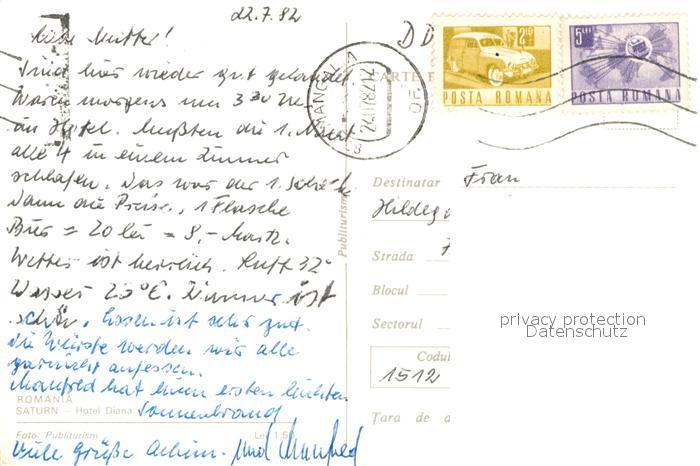 22.7.82
Liebe Mutter!
Sind hier wieder gut gelandet
Waren morgens um 3 30 Uhr
im Hotel. Mußten die 1. Nacht
alle 4 in einem Zimmer
schlafen. Das war der 1.
Dann die Preise, 1 Flasche
Bier = 20 lei = 8,- Mark.
Wetter ist herrlich. Luft 32°
Wasser 23°C. Zimmer ist
schön, Essen ist sehr gut.
die Würste werden wir alle
garnicht aufessen.
Manfred hat einen ersten leichten
Sonnenbrand
Viele Grüße Achim. und Manfred
ROMANIA
SATURN - Hotel Diana
Foto: Publiturism
Lei 1,50
Publiturism
MANGALIA
DDR
CARTE P
2,10
POSTA ROMANA
5 LEI
POSTA ROMANA
Destinatar Frau
Hildeg
Strada
Blocul
Sectorul
Codul
1512
Țara de
privacy protection
Datenschutz